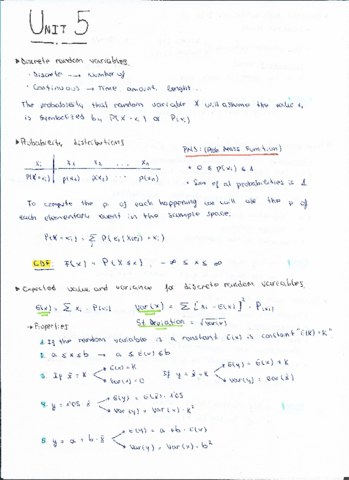 UNIT 5
Discrete random variables.
· Discrete → Number of
· Continuous → Time, amount, height...
The probability that random variable X will assume the value xi
is symbolised by P(X = xi) or P(xi)
Probability distributions
PMS: (Prob Mass Function)
xi | x1 x2 ... xn
P(X=xi) | p(x1) p(x2) ... p(xn)
· 0 ≤ p(xi) ≤ 1
· Sum of all probabilities is 1
To compute the p of each happening we will use the p of
each elementary event in the sample space.
CDF F(x) = P(X ≤ x) , -∞ ≤ x ≤ ∞
Expected value and variance for discrete random variables
E(x) = Σ xi · P(xi) Var(x) = Σ [xi - E(x)]² · P(xi)
→ Properties St Deviation = √Var(x)
1. If the random variable is a constant E(x) is constant "E(K) = K"
2. a ≤ x ≤ b → a ≤ E(x) ≤ b
3. If x = K E(x) = K Var(x) = 0 If y = x + K E(y) = E(x) + K Var(y) = Var(x)
4. E(y) = E(x) · Var(y) = Var(x) · K²
5. y = a + b · x E(y) = a + b · E(x) Var(y) = Var(x) · b²